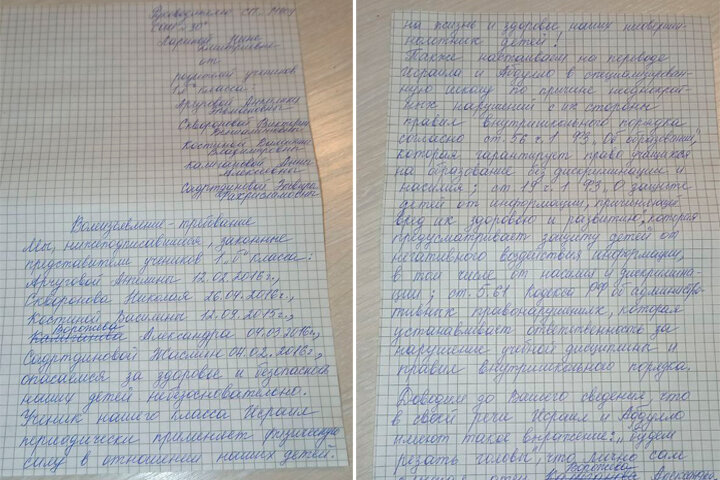 Руководителю СП
СОШ № 30
Лариной Инне
Дмитриевне
от
родителей учеников
1 "б" класса.
Аргуновой Анжелики
Скворцовой Виктории
Вениаминовны
Костиной Валентины
Владимировны
Калигановой Анны
Алексеевны
Садртдиновой Эльвиры
Факрислановны
Волеизъявление - требование
Мы, нижеподписавшиеся, законные
представители учеников 1 "б" класса:
12.02.2016г.,
Николая 26.04.2016г.,
Костиной Василины 12.09.2015г.,
Воропаева
Александра 04.03.2016г.,
Садртдиновой Жасмин 04.02.2016г.,
опасаемся за здоровье и безопасность
наших детей небезосновательно.
Ученик нашего класса Исраил
периодически применяет физическую
силу в отношении наших детей.
на жизнь и здоровье, наших несовершен-
нолетних детей!
Также настаиваем на переводе
Исраила и Абдулло в специализирован-
ную школу по причине неоднократ-
ных нарушений с их стороны
правил внутришкольного порядка
согласно ст. 56 ч. 1 ФЗ „Об образовании",
которая гарантирует право учащихся
на образование без дискриминации и
насилия; ст. 19 ч. 1 ФЗ „О защите
детей от информации, причиняющей
вред их здоровью и развитию", которая
предусматривает защиту детей от
негативного воздействия информации,
в том числе от насилия и дискримина-
ции; ст. 5.61 Кодекса РФ об администра-
тивных правонарушениях, которая
устанавливает ответственность за
нарушение учебной дисциплины и
правил внутришкольного порядка.
Доводим до Вашего сведения, что
в своей речи Исраил и Абдулло
имеют такое выражение: „будем
резать головы", что лично сам
Воропаева